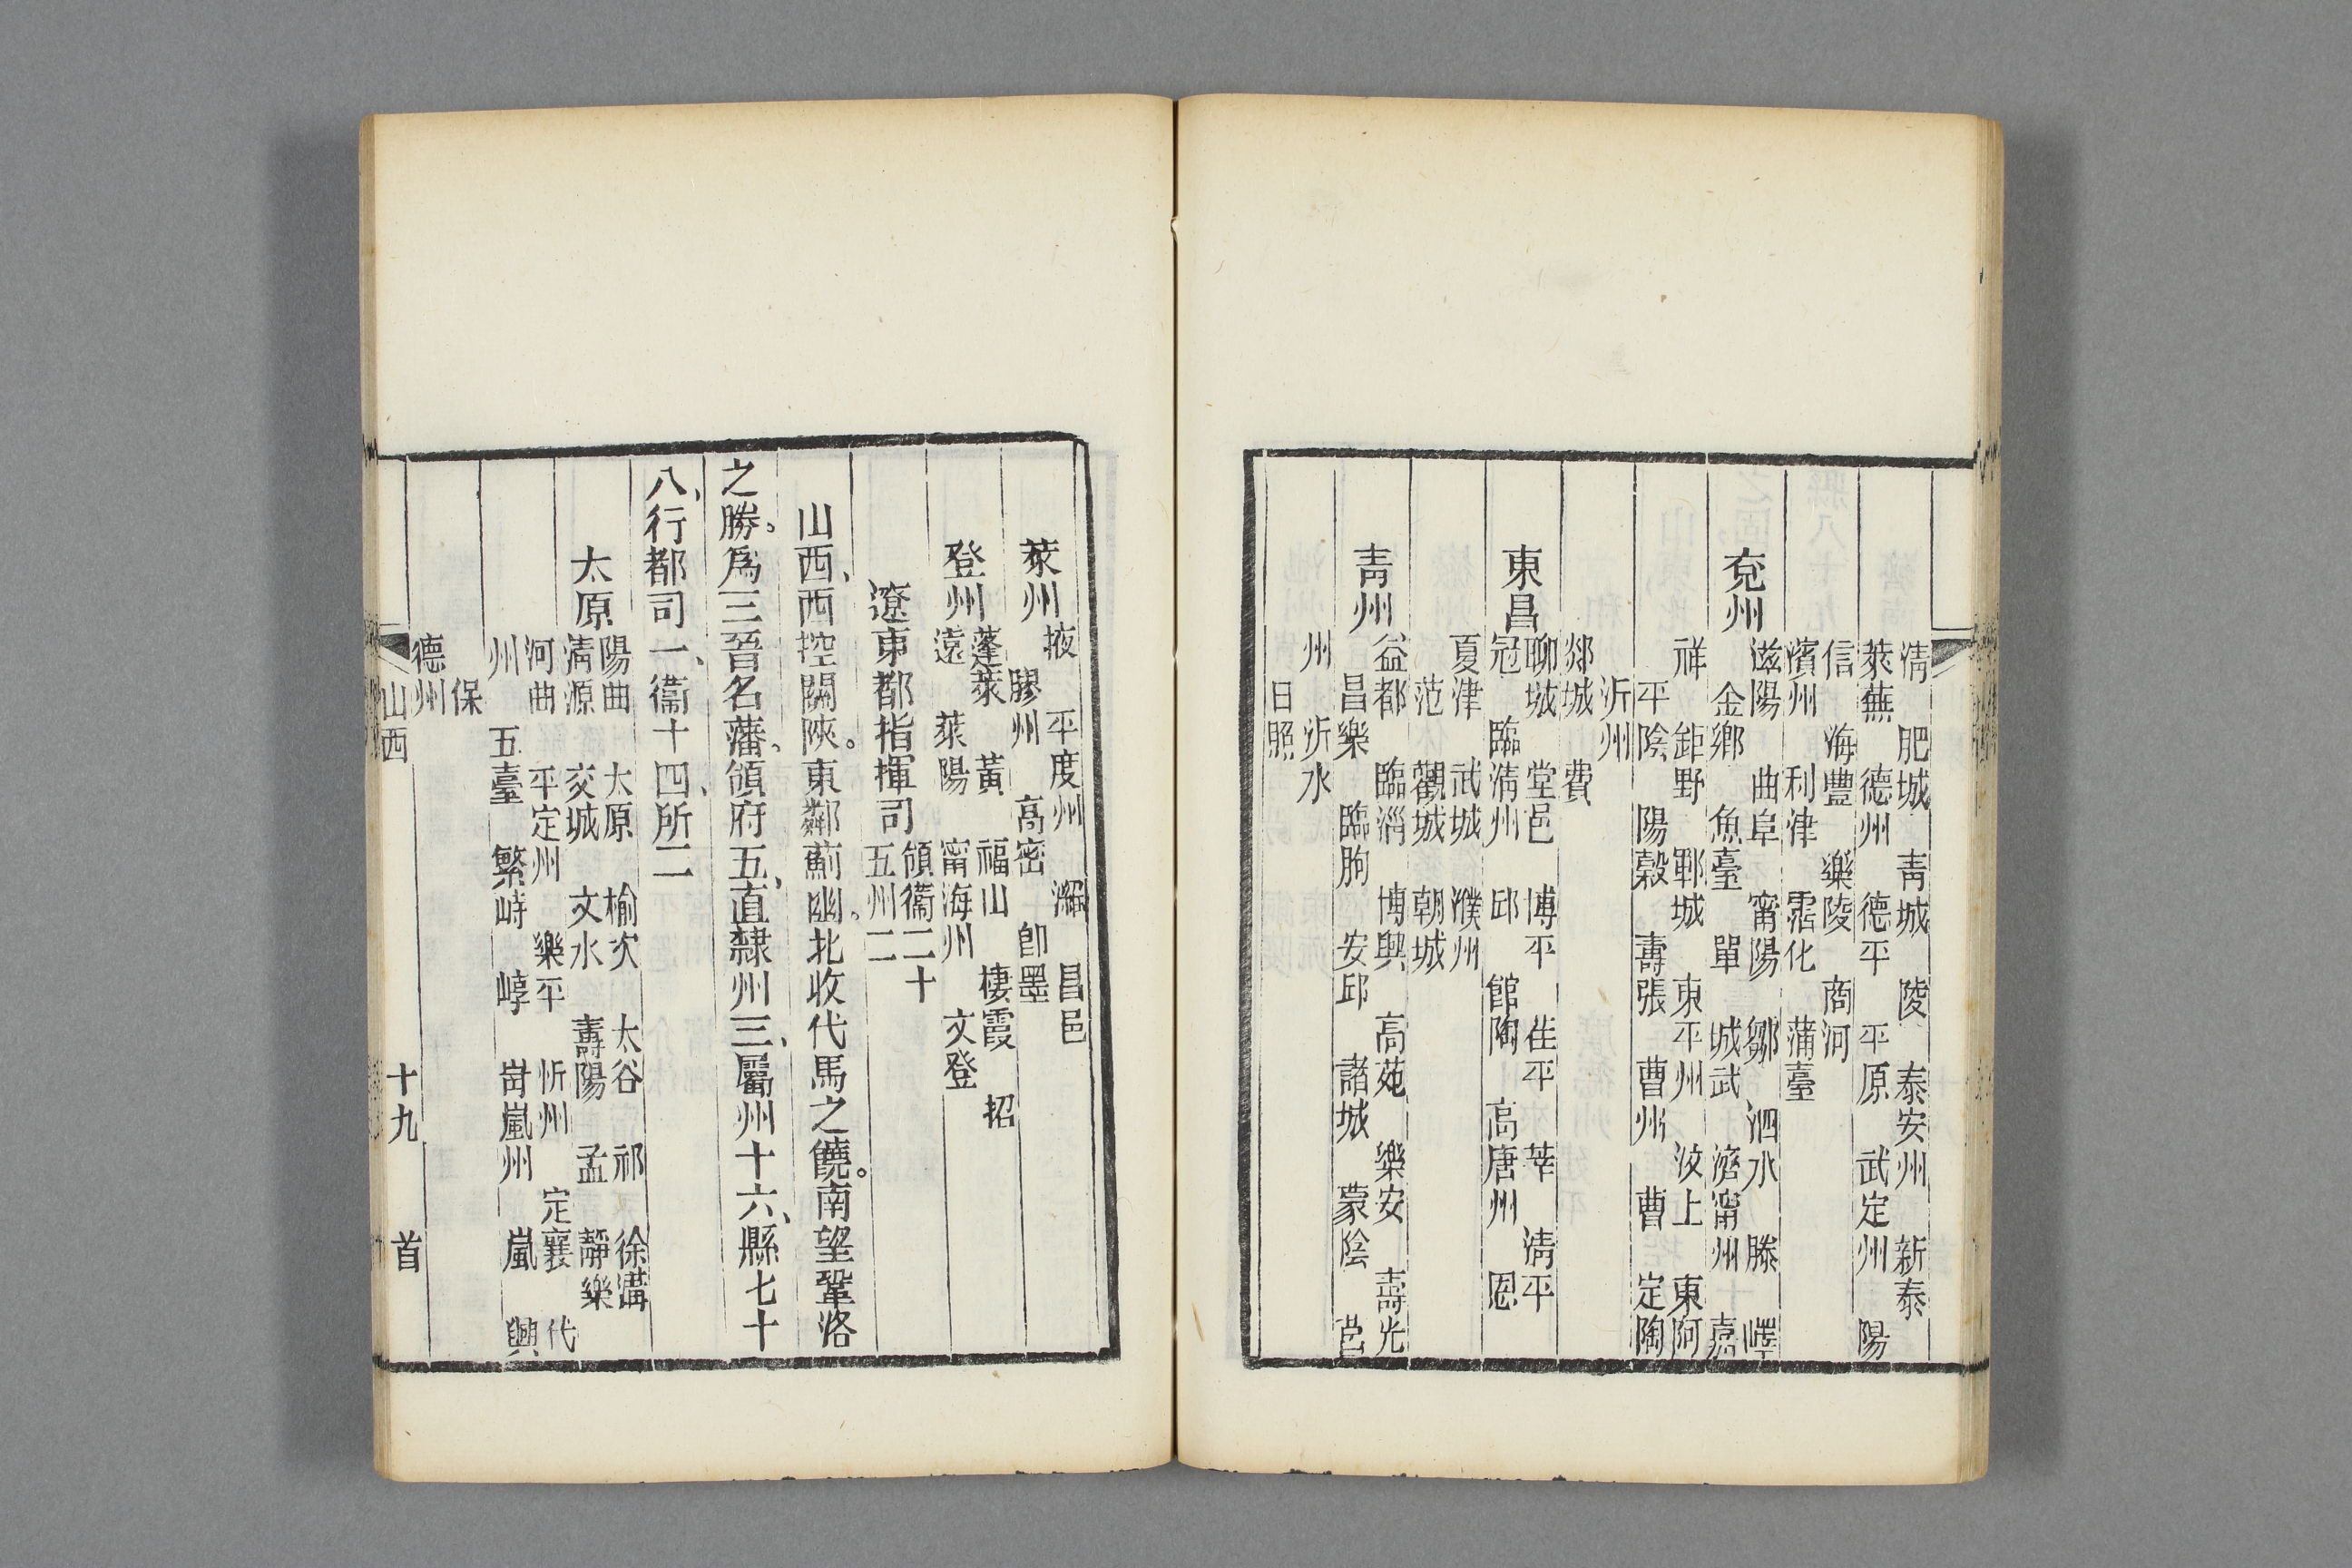 淸 肥城 靑城 陵 泰安州 新泰
萊蕪 德州 德平 平原 武定州 陽
信 海豐 樂陵 商河
濱州 利津 霑化 蒲臺
兗州
滋陽 曲阜 甯陽 鄒 泗水 滕 嶧
金鄉 魚臺 單 城武 濟甯州 嘉
祥 鉅野 鄆城 東平州 汶上 東阿
平陰 陽穀 壽張 曹州 曹 定陶
沂州
郯城 費
東昌
聊城 堂邑 博平 茌平 莘 淸平
冠 臨淸州 邱 館陶 高唐州 恩
夏津 武城 濮州
范 觀城 朝城
靑州
益都 臨淄 博興 高苑 樂安 壽光
昌樂 臨朐 安邱 諸城 蒙陰 莒
州 沂水
日照
萊州
掖 平度州 濰 昌邑
膠州 高密 卽墨
登州
蓬萊 黃 福山 棲霞 招
遠 萊陽 甯海州 文登
遼東都指揮司
領衞二十
五州二
山西、西控關陜。東鄰薊幽。北收代馬之饒。南望鞏洛
之勝。爲三晉名藩。領府五、直隸州三、屬州十六、縣七十
八、行都司一、衞十四、所二
太原
陽曲 太原 榆次 太谷 祁 徐溝
淸源 交城 文水 壽陽 孟 靜樂
河曲 平定州 樂平 忻州 定襄 代
州 五臺 繁峙 崞 岢嵐州 嵐 興
保
德州
山西 十九 首